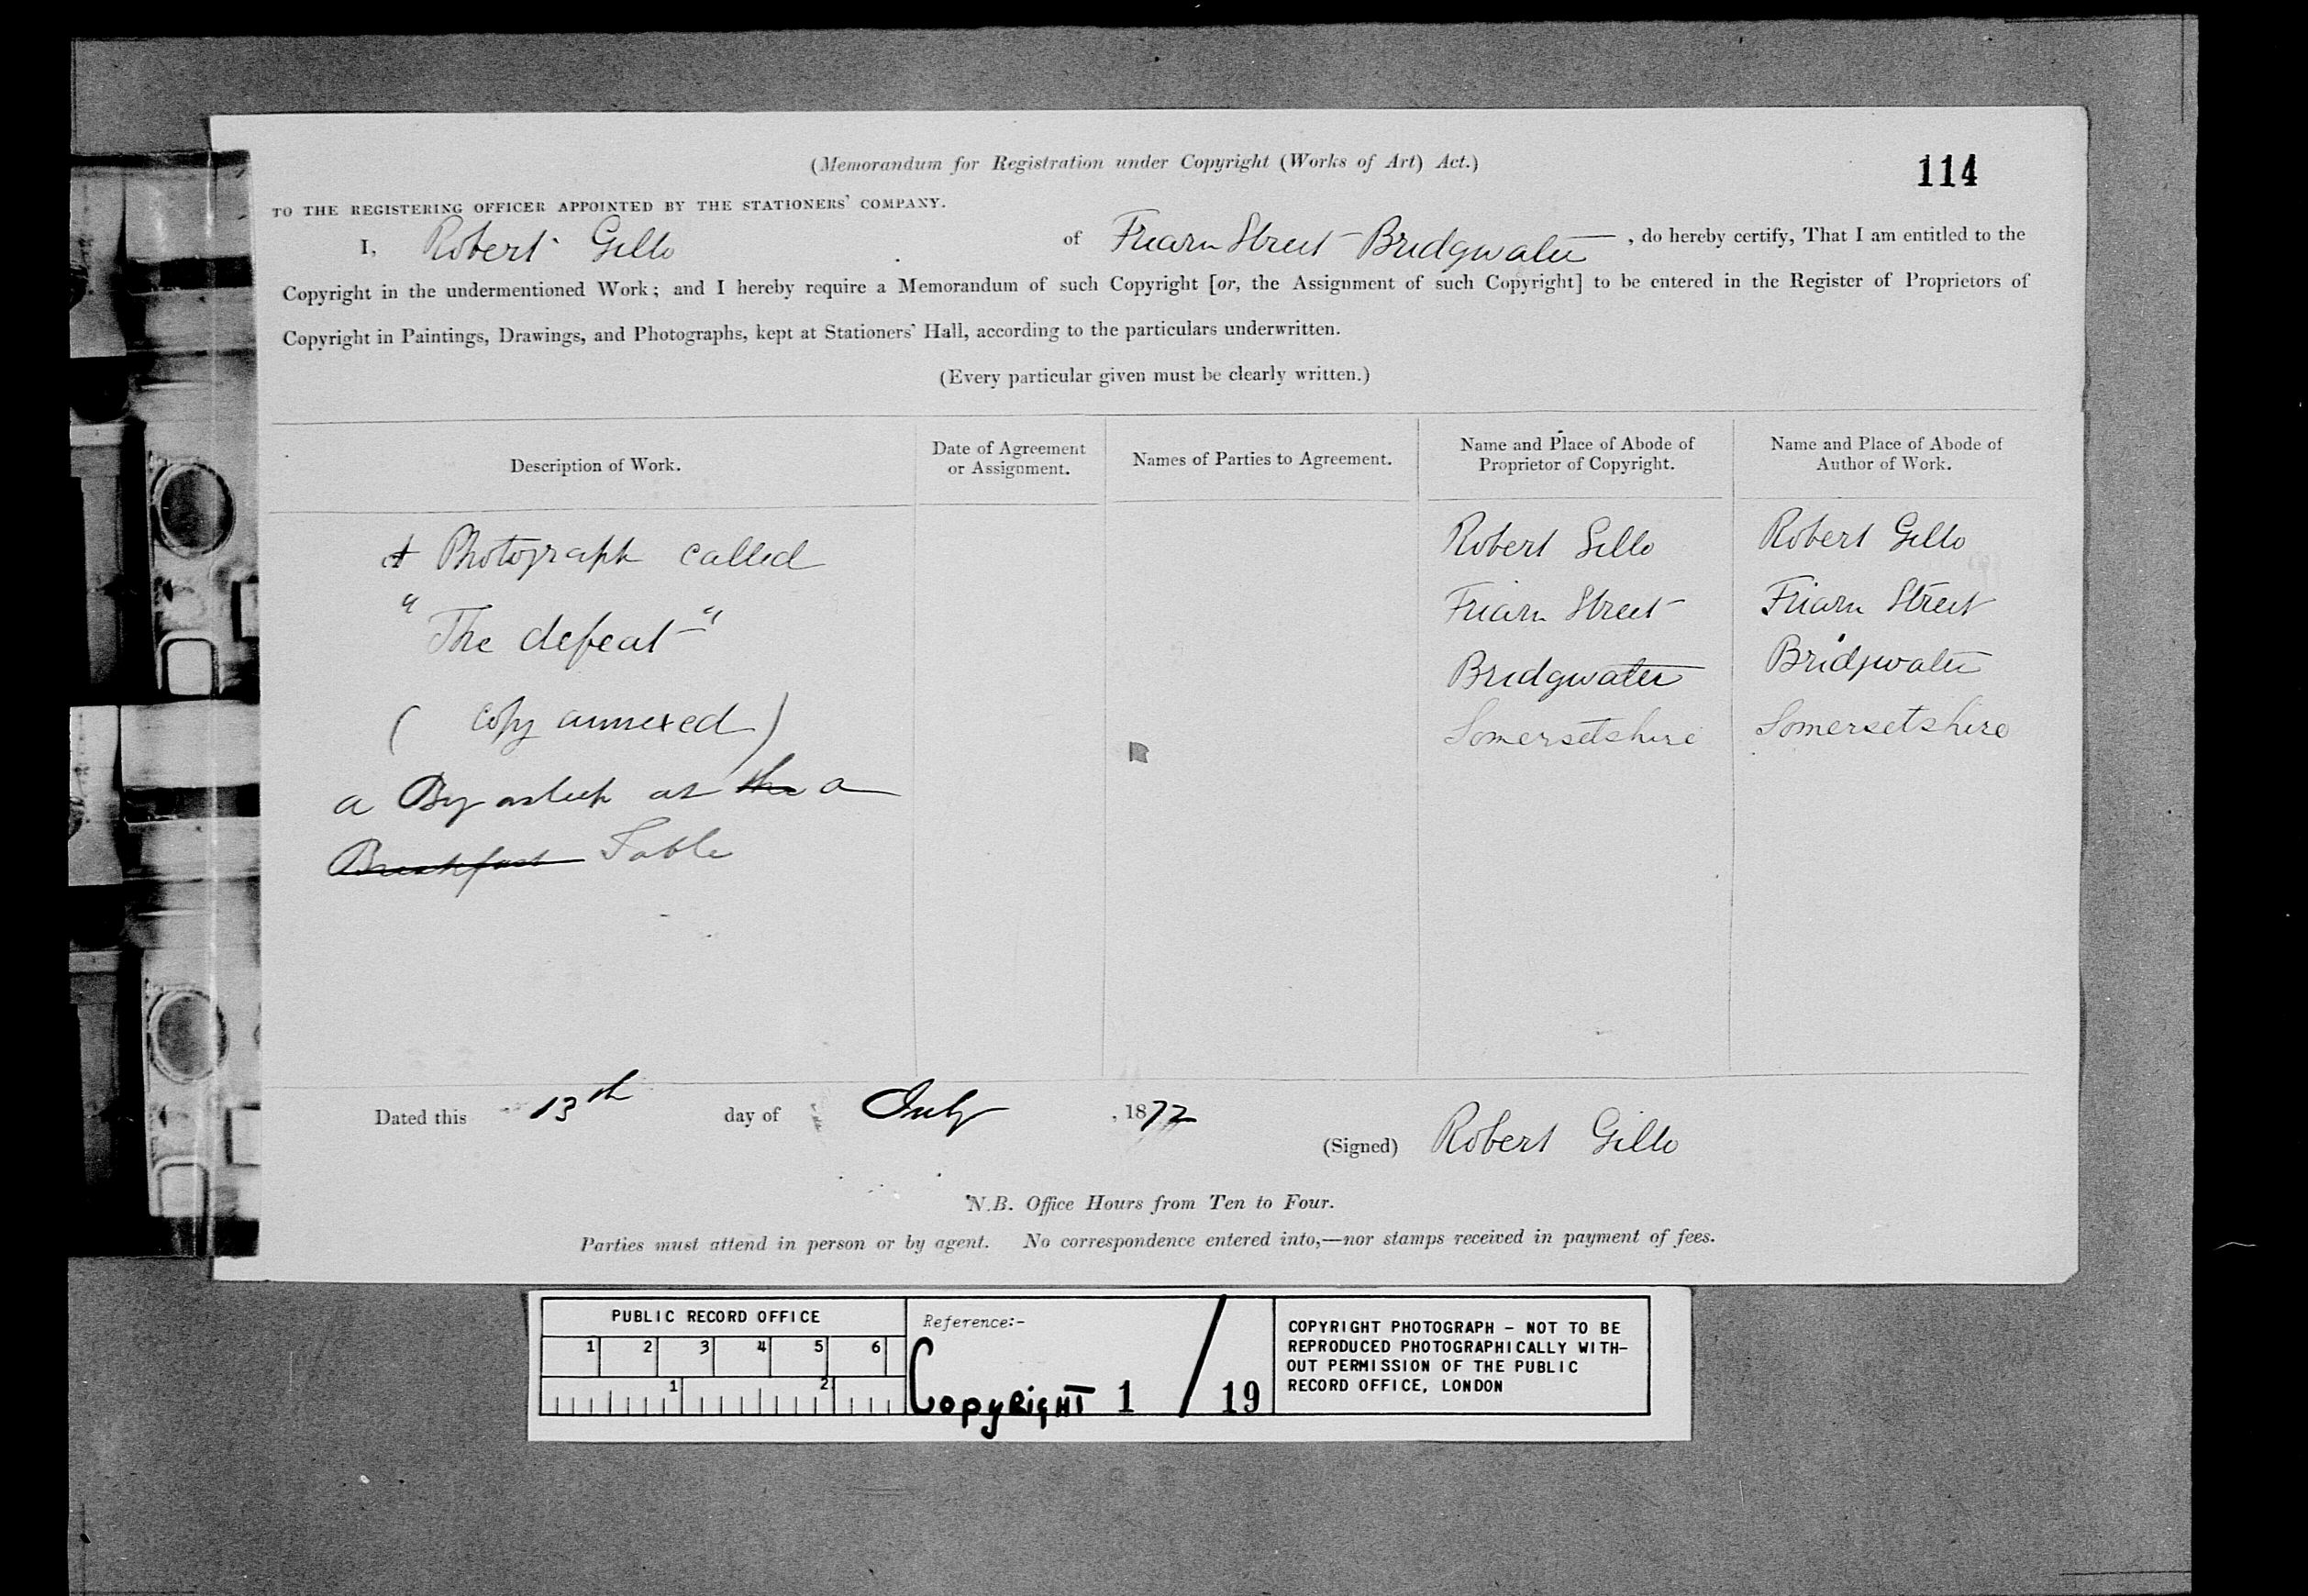 (Memorandum for Registration under Copyright (Works of Art) Act.)
114
TO THE REGISTERING OFFICER APPOINTED BY THE STATIONERS' COMPANY.
I, Robert Gillo of Friarn Street Bridgwater, do hereby certify, That I am entitled to the
Copyright in the undermentioned Work; and I hereby require a Memorandum of such Copyright [or, the Assignment of such Copyright] to be entered in the Register of Proprietors of
Copyright in Paintings, Drawings, and Photographs, kept at Stationers' Hall, according to the particulars underwritten.
(Every particular given must be clearly written.)
Description of Work.
Date of Agreement
or Assignment.
Names of Parties to Agreement.
Name and Place of Abode of
Proprietor of Copyright.
Name and Place of Abode of
Author of Work.
A Photograph called
"The defeat"
(copy annexed)
a Boy asleep at the a
Breakfast Table
Robert Gillo
Friarn Street
Bridgwater
Somersetshire
Robert Gillo
Friarn Street
Bridgwater
Somersetshire
Dated this 13th day of July, 1872
(Signed) Robert Gillo
N.B. Office Hours from Ten to Four.
Parties must attend in person or by agent. No correspondence entered into,—nor stamps received in payment of fees.
PUBLIC RECORD OFFICE
1 2 3 4 5 6
1 2
Reference:-
Copyright 1 / 19
COPYRIGHT PHOTOGRAPH - NOT TO BE
REPRODUCED PHOTOGRAPHICALLY WITH-
OUT PERMISSION OF THE PUBLIC
RECORD OFFICE, LONDON